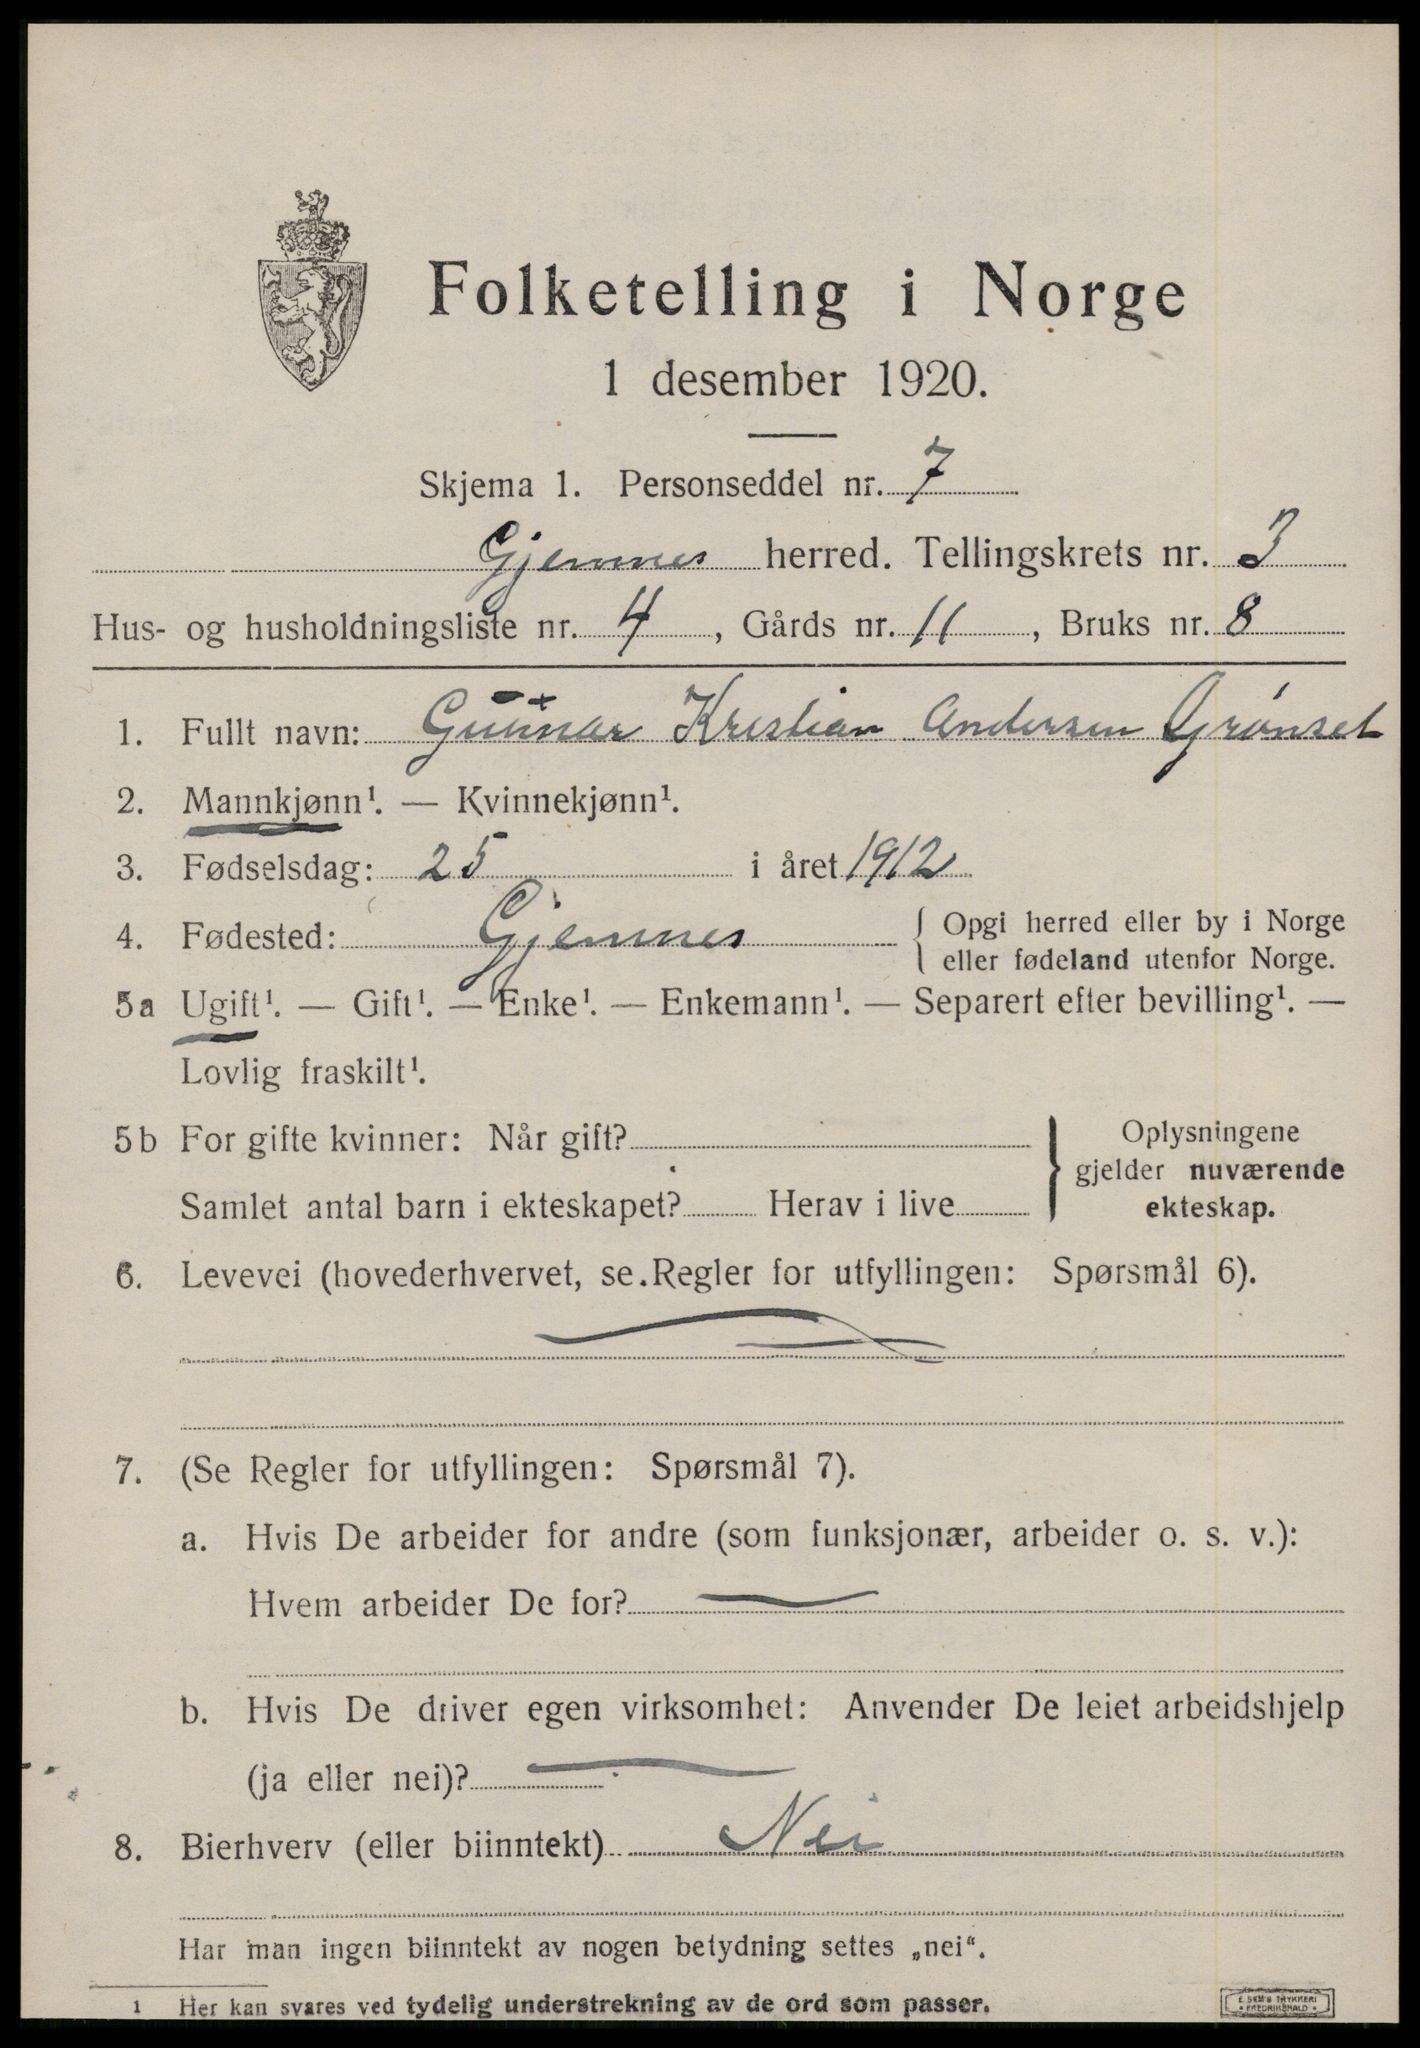 Folketelling i Norge
1 desember 1920.
Skjema 1. Personseddel nr. 7
Gjemnes herred. Tellingskrets nr. 3
Hus- og husholdningsliste nr. 4, Gårds nr. 11, Bruks nr. 8
1. Fullt navn: Gunnar Kristian Andersen Grønset
2. Mannkjønn¹. — Kvinnekjønn¹.
3. Fødselsdag: 25 i året 1912
4. Fødested: Gjemnes { Opgi herred eller by i Norge
eller fødeland utenfor Norge.
5a Ugift¹. — Gift¹. — Enke¹. — Enkemann¹. — Separert efter bevilling¹. —
Lovlig fraskilt¹.
5b For gifte kvinner: Når gift? } Oplysningene
gjelder nuværende
Samlet antal barn i ekteskapet? Herav i live ekteskap.
6. Levevei (hovederhvervet, se Regler for utfyllingen: Spørsmål 6).
7. (Se Regler for utfyllingen: Spørsmål 7).
a. Hvis De arbeider for andre (som funksjonær, arbeider o. s. v.):
Hvem arbeider De for? —
b. Hvis De driver egen virksomhet: Anvender De leiet arbeidshjelp
(ja eller nei)? —
8. Bierhverv (eller biinntekt) Nei
Har man ingen biinntekt av nogen betydning settes „nei“.
1 Her kan svares ved tydelig understrekning av de ord som passer.
E. SEM'S TRYKKERI
• FREDRIKSHALD •